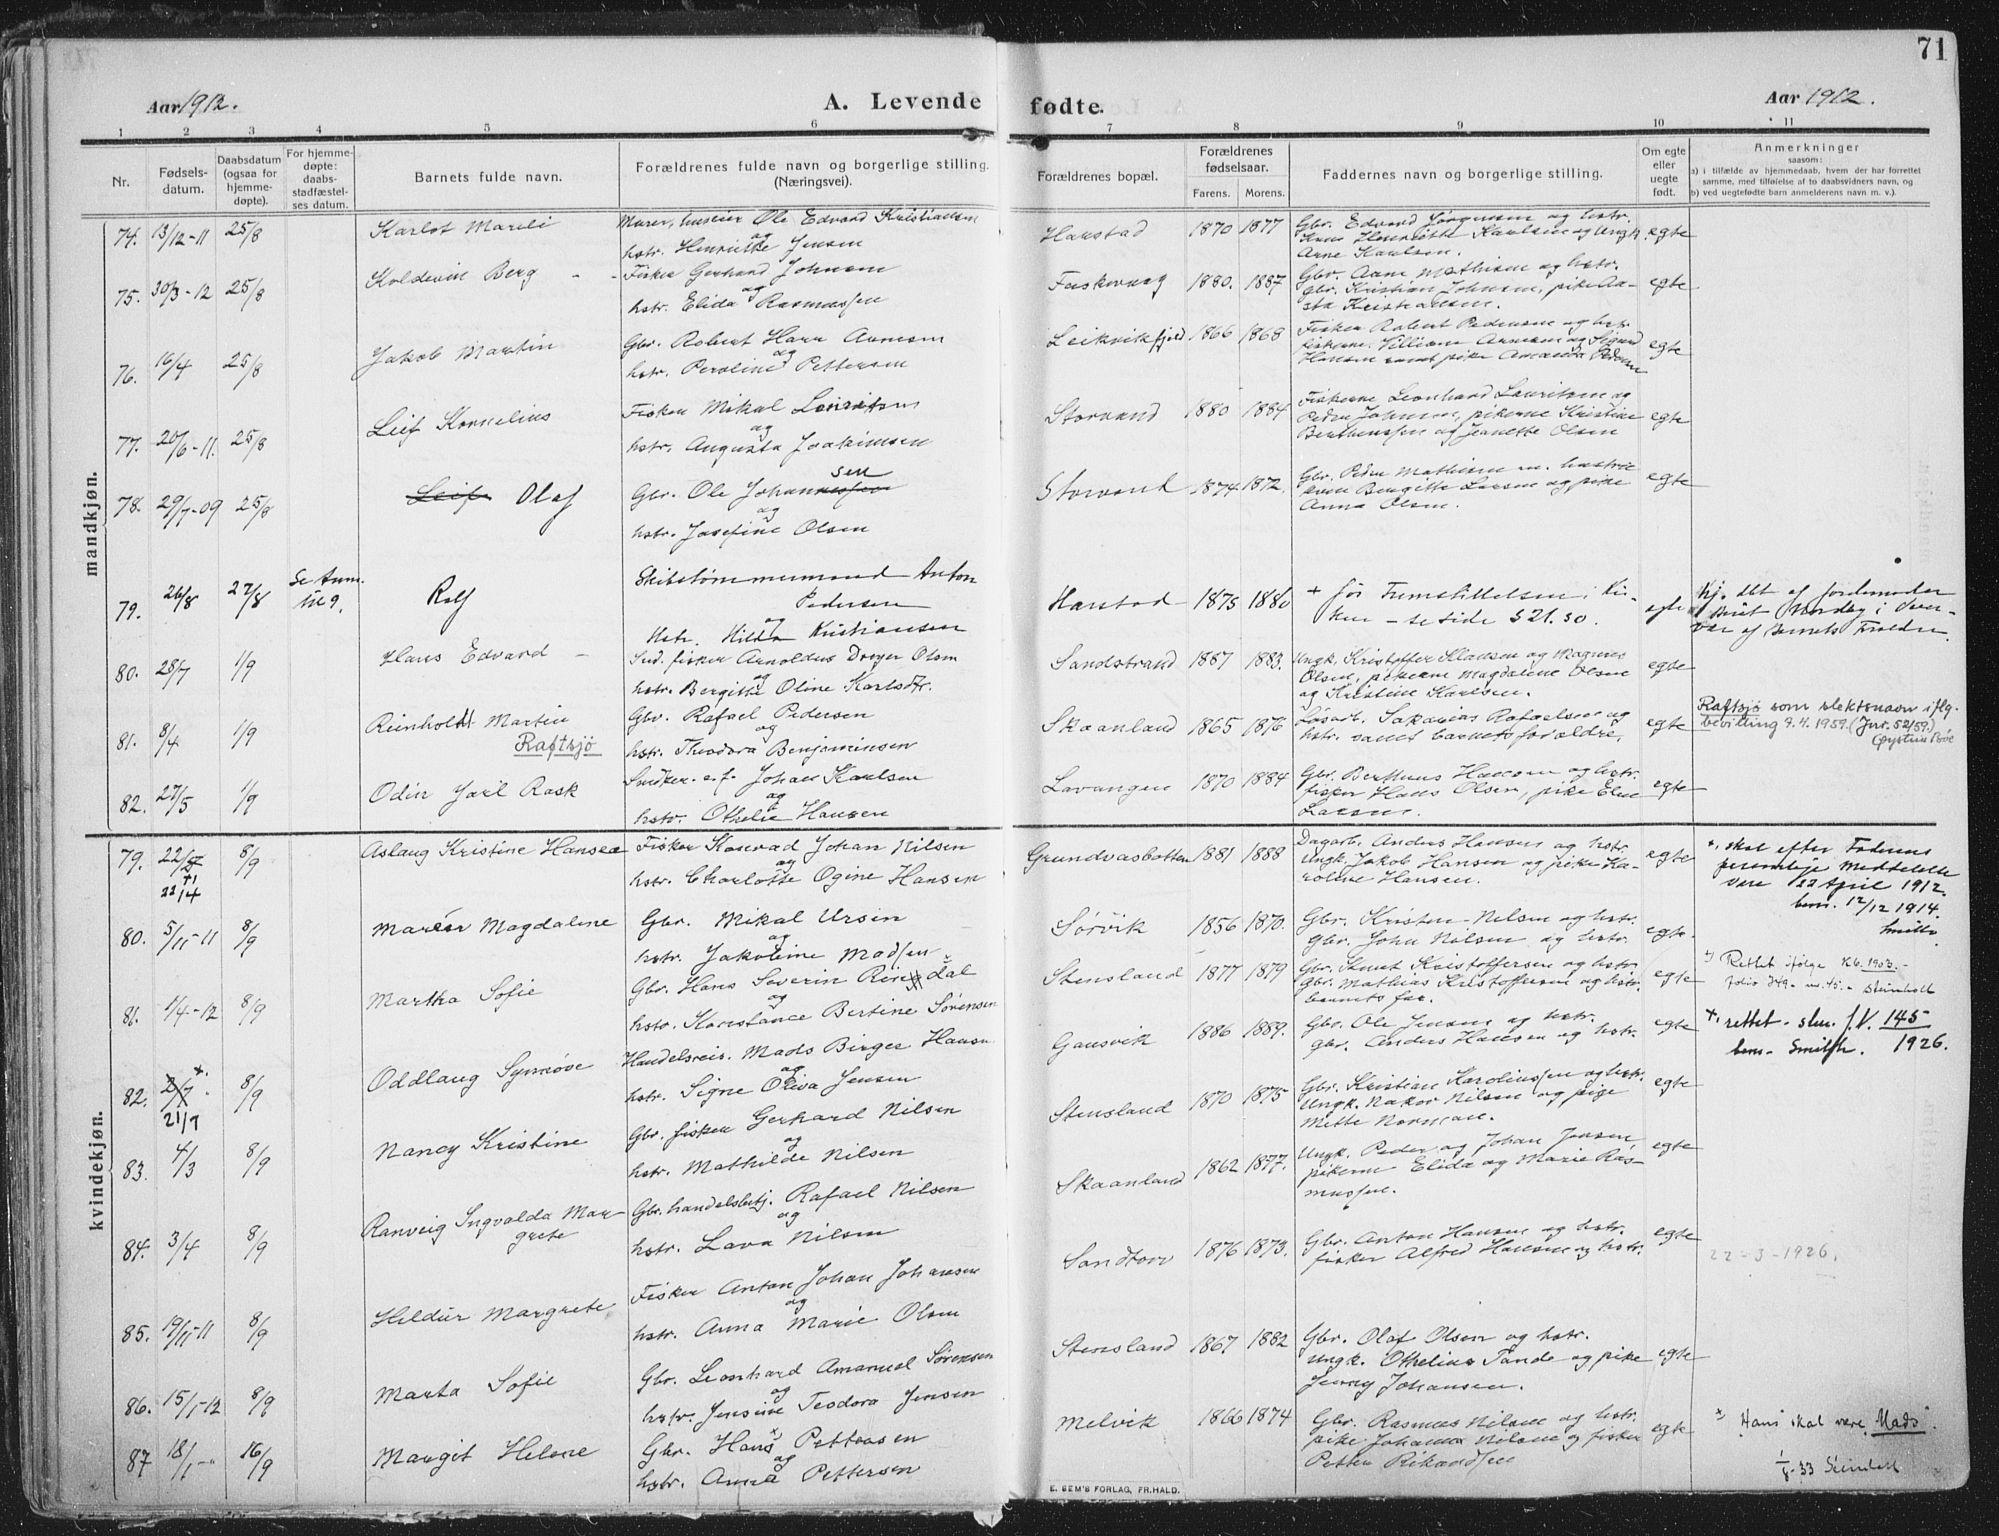 71
Aar 1912.
A. Levende fødte.
Aar 1912.
1 2 3 4 5 6 7 8 9 10 11
Nr.
Fødsels-
datum.
Daabsdatum
(ogsaa for
hjemme-
døpte).
For hjemme-
døpte:
daabs-
stadfæstel-
ses datum.
Barnets fulde navn.
Forældrenes fulde navn og borgerlige stilling.
(Næringsvei).
Forældrenes bopæl.
Forældrenes
fødselsaar.
Farens. Morens.
Faddernes navn og borgerlige stilling.
Om egte
eller
uegte
født.
Anmerkninger
saasom:
a) i tilfælde av hjemmedaab, hvem der har forrettet
samme, med tilføielse af to daabsvidners navn, og
b) ved uegtefødte barn anmelderens navn m. v.).
mandkjøn.
74. 13/12-11 25/8 Karlot Mareli Murer, Ole Edvard Kristiansen
og
hstr. Henriette Jensen
Harstad 1870 1877 Gbr. Edvard Jørgensen og hstr.
Henriette Karlsen og Ungk.
Arne Karlsen.
egte
75. 30/3-12 25/8 Koldevin Berg - - Fisker Gerhard Johnsen
og
hstr. Elida Rasmussen
Faskevaag 1880. 1887 Gbr. Aane Mathisen og hstr.
Gbr. Kristian Johnsen, pike Aa-
sta Kristiansen.
egte
76. 16/4 25/8 Jakob Martin Gbr. Robert Harr Arnesen
og
hstr. Peroline Pettersen
Leikvikfjeld 1866 1868 Fisker Robert Pedersen og hstr.
fiskerne. Villiam Arnesen og Sigurd
Hansen samt pike Amanda Pedersen
egte
77. 20/6-11. 25/8 Leif Kornelius Fisker Mikal Lauritsen
og
hstr. Augusta Joakimsen
Storvand 1880 1884 Fiskerne Leonhard Lauritsen og
Peder Johnsen, pikerne Kristine
Berthenssen og Jeanette Olsen
egte
78. 29/7-09 25/8 Leif Olaf Gbr. Ole Johannessen sen
og
hstr. Josefine Olsen
Storvand 1874 1872. Gbr. Peder Mathisen m. hustru
Bergitte Larsen og pike
Anna Olsen.
egte
79. 26/8 27/8 Se Anm.
Rolf Skibstømmermand Anton
Pedersen
og
Hstr. Hilda Kristiansen
Harstad 1875 1880 + før Fremstillelsen i Kir-
ken - se side 521.50.
egte
Hj. døbt af jordemoder
Berit Nordby i Over-
vær af Barnets Forældre.
80. 28/7 1/9 Hans Edvard - Sud. fisker Arnoldus Dreyer Olsen
og
hstr. Bergitte Oline Karlsdtr.
Sandstrand 1887 1883. Ungk. Kristoffer Klausen og Magnus
Olsen, pikerne Magdalene Olsen
og Kristine Karlsen.
egte
81. 8/4 1/9 Reinholdt Martin
Raftsjö
Gbr. Rafael Pedersen
og
hstr. Theodora Benjaminsen
Skaanland 1865 1876 Løsarb. Sakarias Rafaelsen og
hstr. samt barnets forældre.
egte
Raftsjö som slektsnavn iflg.
bevilling 7.4.1959. (Jnr. 52/59.)
Øystein Bøe
82. 27/5 1/9 Odin Jarl Rask Snedker e.f. Johan Karlsen
og
hstr. Othelie Hansen
Lavangen 1870 1884 Gbr. Bertheus Hansen og hstr.
fisker Hans Olsen, pike Elen
Larsen.
egte
kvindekjøn.
79. 22/5 +)
22/4
8/9 Aslaug Kristine Hansen Fisker Konrad Johan Nilsen
og
hstr. Charlotte Ogine Hansen
Grundvasbotten 1881 1888 Dagarb. Anders Hansen og hstr
Ungk. Jakob Hansen og pike Ka-
roline Hansen.
egte
+, skal efter Faderens
personlige Meddelelse
være 22 April 1912.
bem. 12/12 1914.
80. 5/11-11 8/9 Maren Magdalene Gbr. Mikal Ursin
og
hstr. Jakobine Madsen
Sørvik 1856 1870. Gbr. Kristen Nilsen og hstr.
Gbr. John Nilsen og hstr.
egte.
81. 1/4-12 8/9 Martha Sofie Gbr. Hans Severin Reinsdal
og
hstr. Konstance Bertine Sørensen
Stensland 1877 1879 Gbr. Knut Kristoffersen og hstr
Gbr. Mathias Kristoffersen og hstr.
barnets far.
egte
x) Rettet ifølge Kb. 1903. -
folio 349 - nr. 45. - Steinholt
82. 2/7 +.
21/7
8/9 Oddlaug Synnøve Handelsreis. Mads Berger Hansen
og
hstr. Signe Oliva Jensen
Gausvik 1886 1889. Gbr. Ole Jensen og hstr.
gbr. Anders Hansen og hstr.
egte
+, rettet - skr. J.V. 145
1926.
bem. Smith.
83. 4/3 8/9 Nancy Kristine Gbr. fisker Gerhard Nilsen
og
hstr. Mathilde Nilsen
Stensland 1870 1875 Gbr. Kristian Karolinssen og hstr.
Ungk. Nakor Nilsen og pige
Mette Norman.
egte
84. 3/4 8/9 Ranveig Ingvalda Mar-
grete
Gbr. handelsbetj. Rafael Nilsen
og
hstr. Lava Nilsen
Skaanland 1862 1877. Ungk. Peder og Johan Jensen
pikerne Elida og Marie Ras-
mussen.
egte
85. 19/11-11 8/9 Hildur Margrete Fisker Anton Johan Johansen
og
hstr. Anna Marie Olsen
Sandtorv 1876 1873. Gbr. Anton Hansen og hstr.
fisker Alfred Hansen og hstr.
egte
22-3-1926.
86. 15/1-12 8/9 Marta Sofie Gbr. Leonhard Amanuel Sørensen
og
hstr. Jensine Teodora Jensen
Stensland 1867 1882 Gbr. Olaf Olsen og hstr.
Ungk. Othelius Tande og pike
Jenny Johansen.
egte
87 18/1-" 16/9 Margit Helene Gbr. Hans Pettersen
og
hstr. Anna Pettersen
Melvik 1866 1874 Gbr. Rasmus Nilsen og hstr.
pike Johanna Nilsen og fisker
Petter Rikardsen
egte
x "Hans" skal være "Mads".
1/8-33
E. SEM'S FORLAG, FR.HALD.